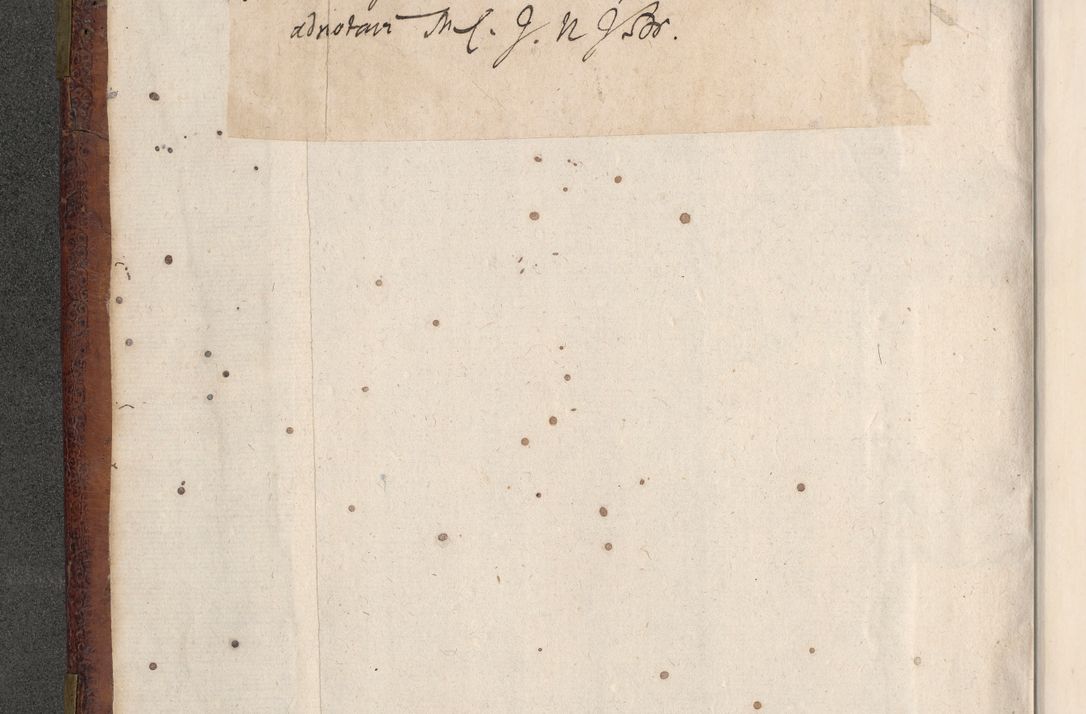 adnotavi M C. J. N J Br.